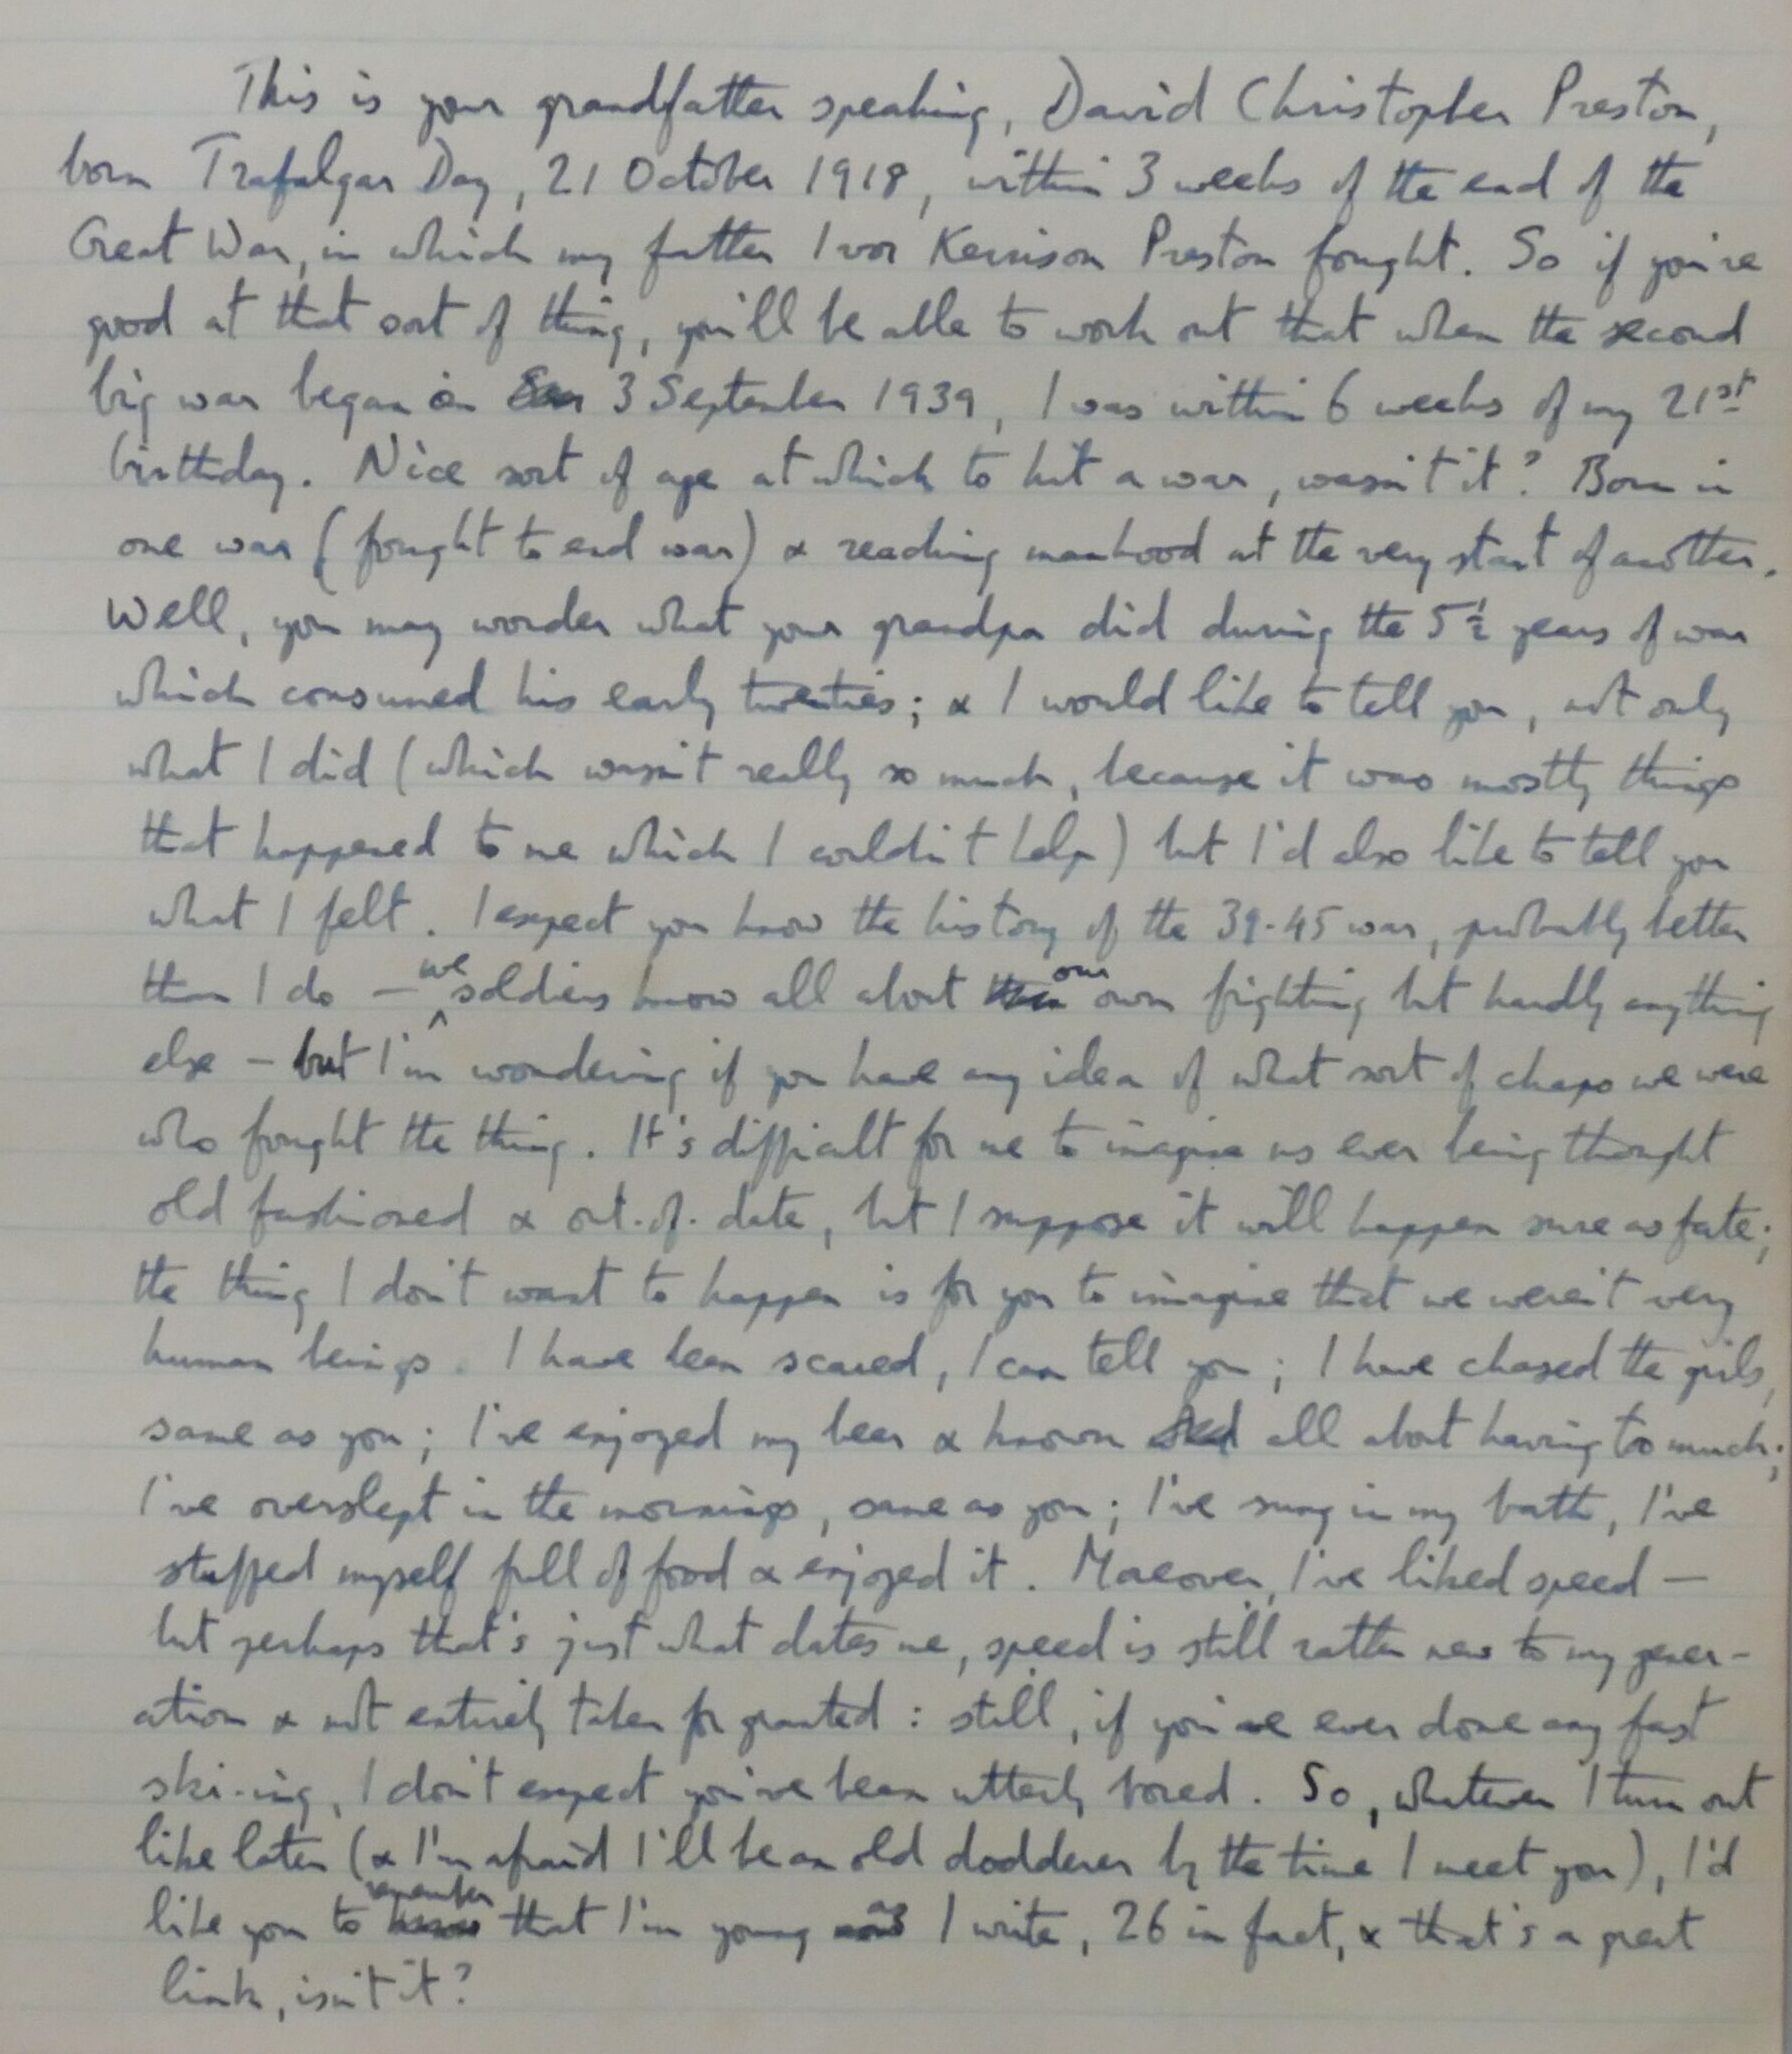 This is your grandfather speaking, David Christopher Preston,
born Trafalgar Day, 21 October 1918, within 3 weeks of the end of the
Great War, in which my father Ivor Kerrison Preston fought. So if you're
good at that sort of thing, you'll be able to work out that when the second
big war began on 3 September 1939, I was within 6 weeks of my 21st
birthday. Nice sort of age at which to hit a war, wasn't it? Born in
one war (fought to end war) & reaching manhood at the very start of another.
Well, you may wonder what your grandpa did during the 5½ years of war
which consumed his early twenties; & I would like to tell you, not only
what I did (which wasn't really so much, because it was mostly things
that happened to me which I couldn't help) but I'd also like to tell you
what I felt. I expect you know the history of the 39-45 war, probably better
than I do – we soldiers know all about our own fighting but hardly anything
else – but I'm wondering if you have any idea of what sort of chaps we were
who fought the thing. It's difficult for me to imagine us ever being thought
old fashioned & out-of-date, but I suppose it will happen sure as fate;
the thing I don't want to happen is for you to imagine that we weren't very
human beings. I have been scared, I can tell you; I have chased the girls,
same as you; I've enjoyed my beer & known all about having too much;
I've overslept in the mornings, same as you; I've sung in my bath, I've
stuffed myself full of food & enjoyed it. Moreover, I've liked speed –
but perhaps that's just what dates me, speed is still rather new to my gener-
ation & not entirely taken for granted: still, if you've ever done any fast
ski-ing, I don't expect you've been utterly bored. So, whatever I turn out
like later (& I'm afraid I'll be an old dodderer by the time I meet you), I'd
like you to remember that I'm young as I write, 26 in fact, & that's a great
link, isn't it?